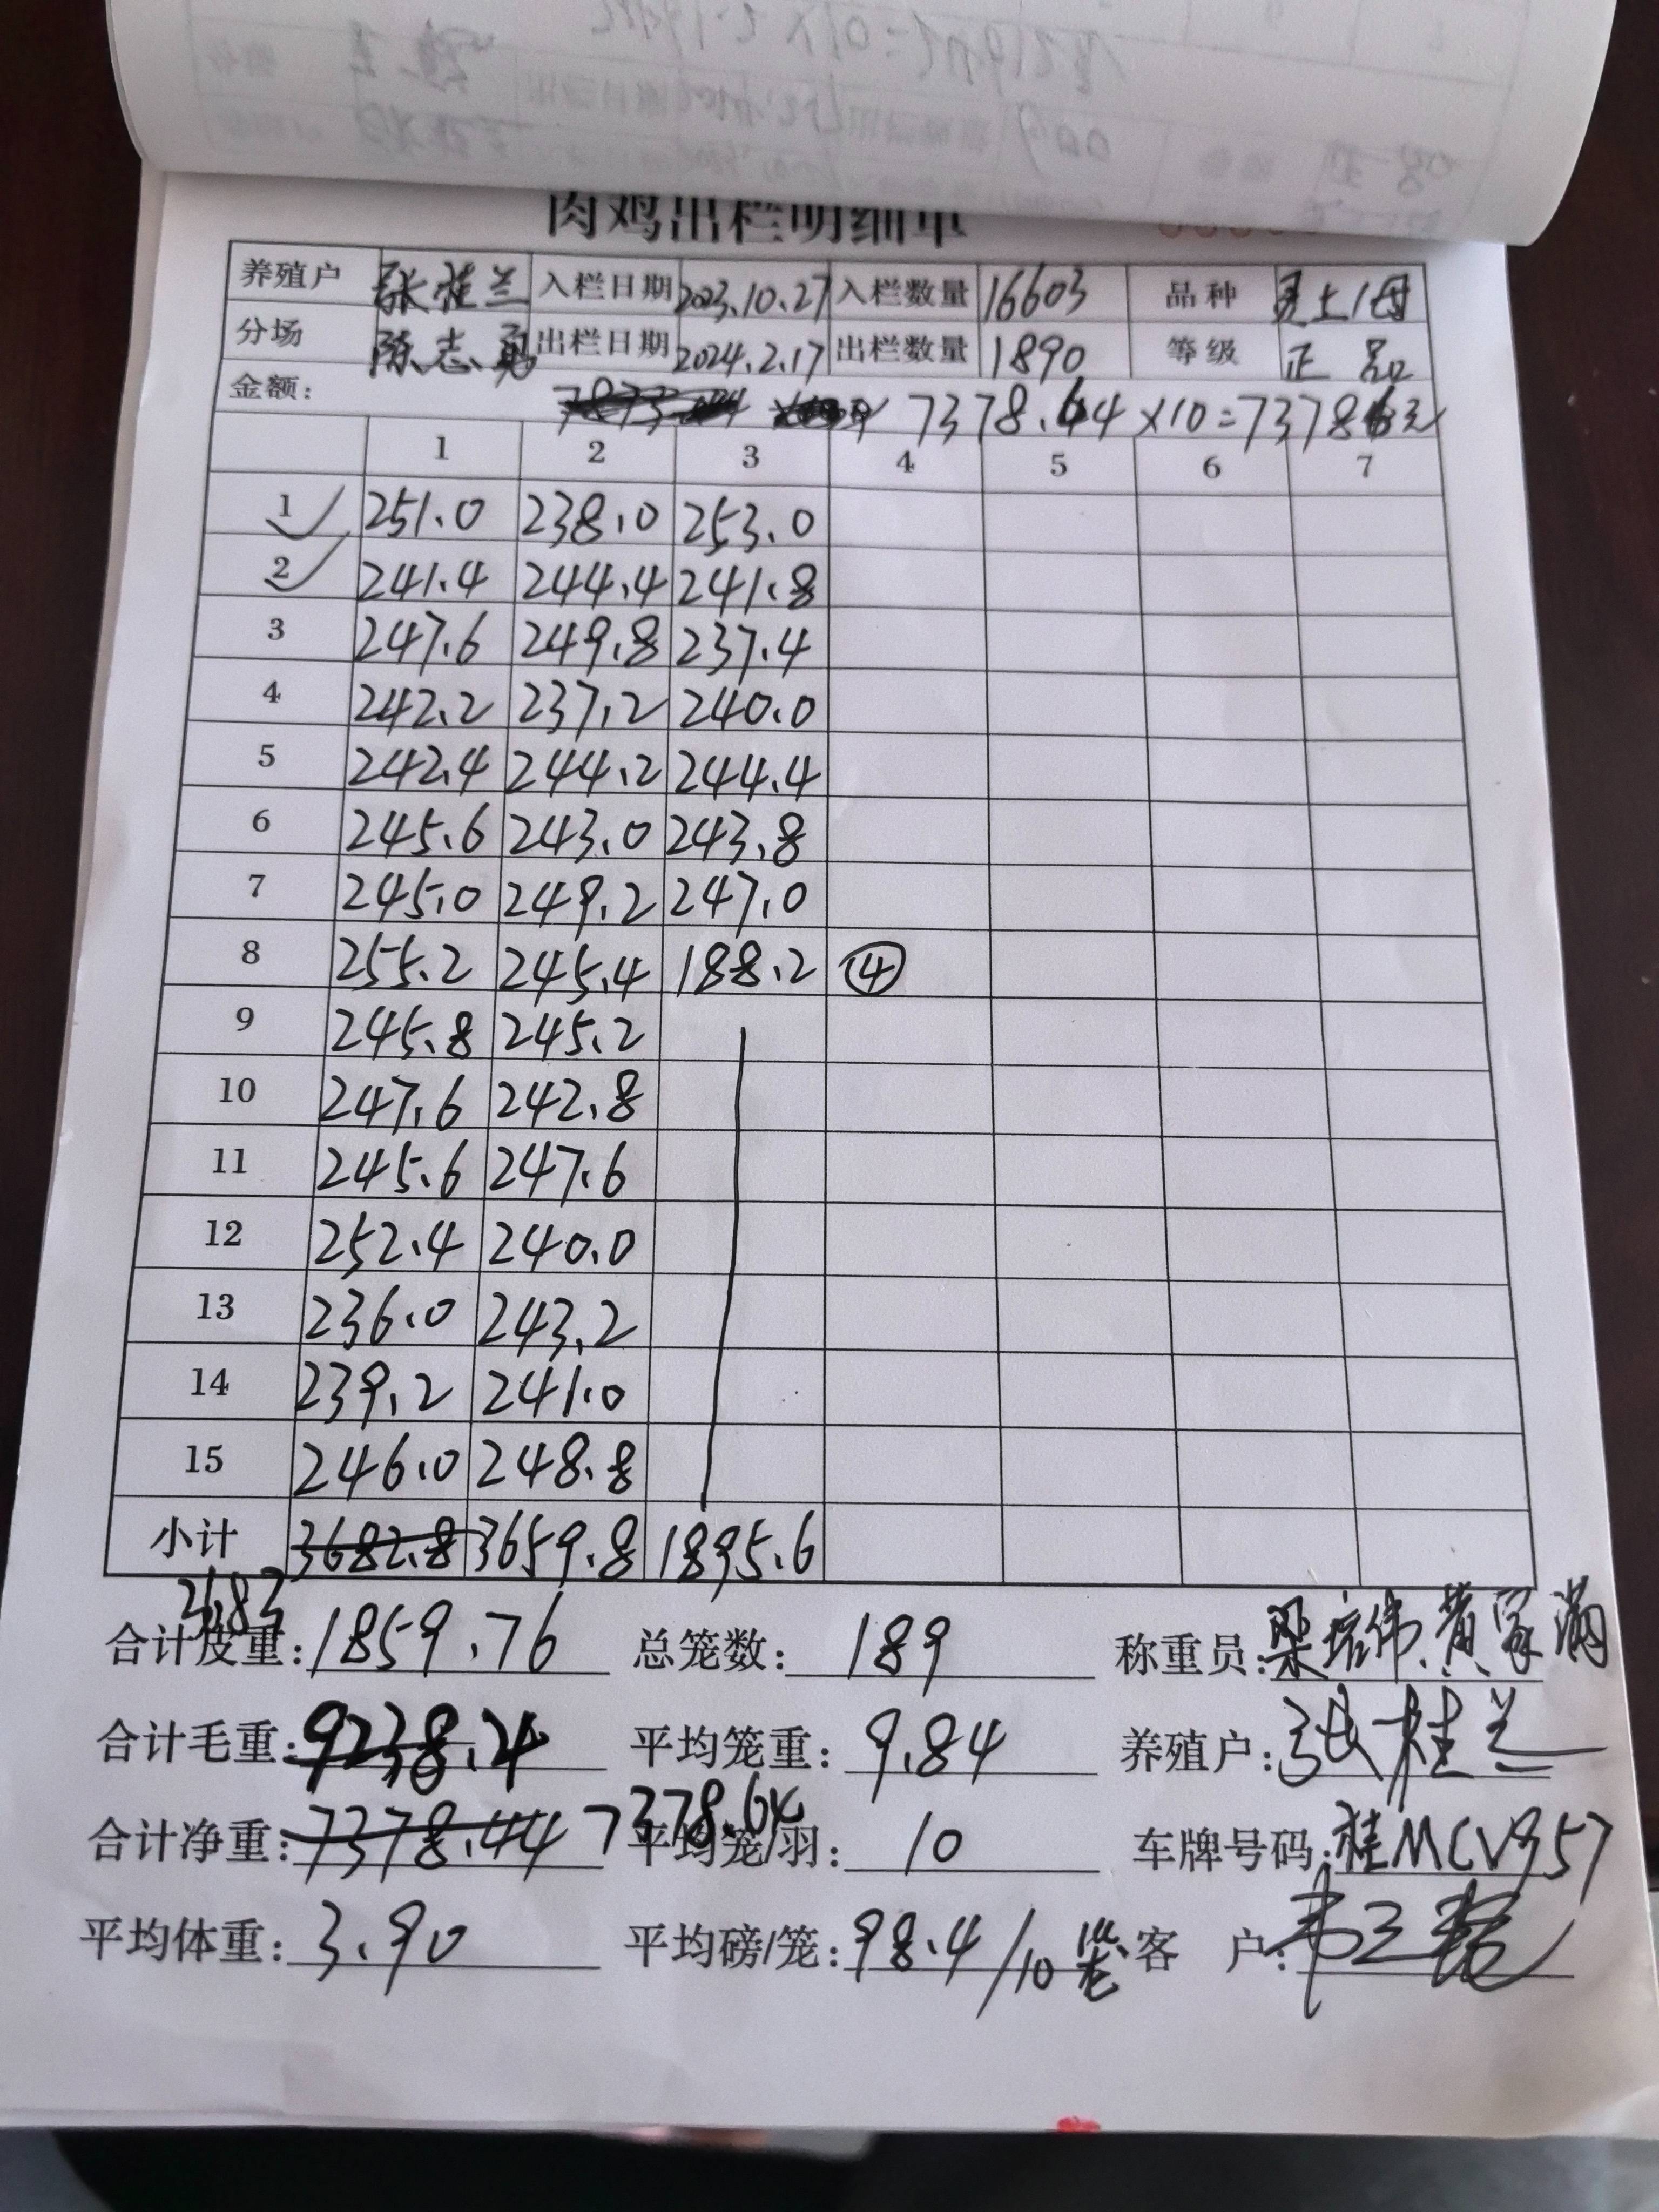 肉鸡出栏明细单
养殖户 张桂兰 入栏日期 2023.10.27 入栏数量 16603 品种 土1母
分场 陈志勇 出栏日期 2024.2.17 出栏数量 1890 等级 正品
金额: 7378.64×10=73786元
1 2 3 4 5 6 7
1 251.0 238.0 253.0
2 241.4 244.4 241.8
3 247.6 249.8 237.4
4 242.2 237.2 240.0
5 242.4 244.2 244.4
6 245.6 243.0 243.8
7 245.0 249.2 247.0
8 255.2 245.4 188.2 ④
9 245.8 245.2
10 247.6 242.8
11 245.6 247.6
12 252.4 240.0
13 236.0 243.2
14 239.2 241.0
15 246.0 248.8
小计 3682.8 3659.8 1895.6
3683
合计皮重: 1859.76 总笼数: 189 称重员: 梁培伟、黄家满
合计毛重: 9238.4 平均笼重: 9.84 养殖户: 张桂兰
合计净重: 7378.44 7378.64 平均笼/羽: 10 车牌号码: 桂MCV957
平均体重: 3.90 平均磅/笼: 98.4/10笼 客户: